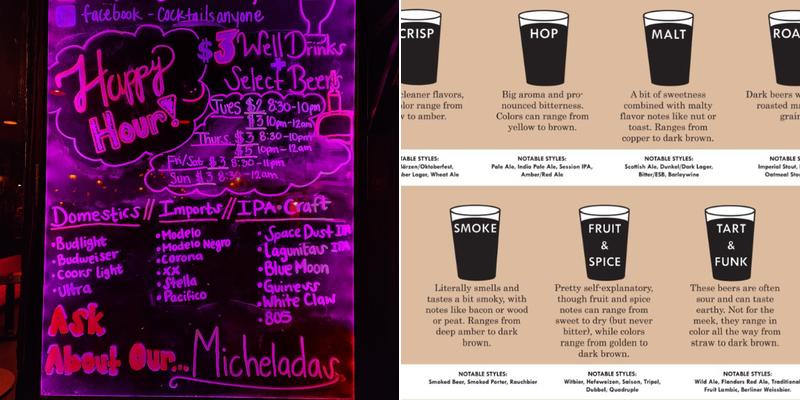 facebook - Cocktailsanyone
$3 Well Drinks
+
Select Beers
Happy
Hour!
Tues $2 8:30-10pm
$3 10pm-12am
Thurs $3 8:30-10pm
$5 10pm-12am
Fri/Sat $3 8:30-11pm
Sun $3 8:30-12am
Domestics // Imports // IPA-Craft
•Budlight
•Budweiser
•Coors light
•Ultra
•Modelo
•Modelo Negro
•Corona
•XX
•Stella
•Pacifico
•Space Dust IPA
•Lagunitas IPA
•Blue Moon
•Guiness
•White Claw
•805
Ask
About Our... Micheladas
CRISP
cleaner flavors,
color range from
to amber.
NOTABLE STYLES:
Märzen/Oktoberfest,
Amber Lager, Wheat Ale
HOP
Big aroma and pro-
nounced bitterness.
Colors can range from
yellow to brown.
NOTABLE STYLES:
Pale Ale, India Pale Ale, Session IPA,
Amber/Red Ale
MALT
A bit of sweetness
combined with malty
flavor notes like nut or
toast. Ranges from
copper to dark brown.
NOTABLE STYLES:
Scottish Ale, Dunkel/Dark Lager,
Bitter/ESB, Barleywine
ROA
Dark beers w
roasted m
grain
NOTABLE
Imperial Stout,
Oatmeal Sto
SMOKE
Literally smells and
tastes a bit smoky, with
notes like bacon or wood
or peat. Ranges from
deep amber to dark
brown.
NOTABLE STYLES:
Smoked Beer, Smoked Porter, Rauchbier
FRUIT
&
SPICE
Pretty self-explanatory,
though fruit and spice
notes can range from
sweet to dry (but never
bitter), while colors
range from golden to
dark brown.
NOTABLE STYLES:
Witbier, Hefeweizen, Saison, Tripel,
Dubbel, Quadruple
TART
&
FUNK
These beers are often
sour and can taste
earthy. Not for the
meek, they range in
color all the way from
straw to dark brown.
NOTABLE STYLES:
Wild Ale, Flanders Red Ale, Traditional
Fruit Lambic, Berliner Weissbier.